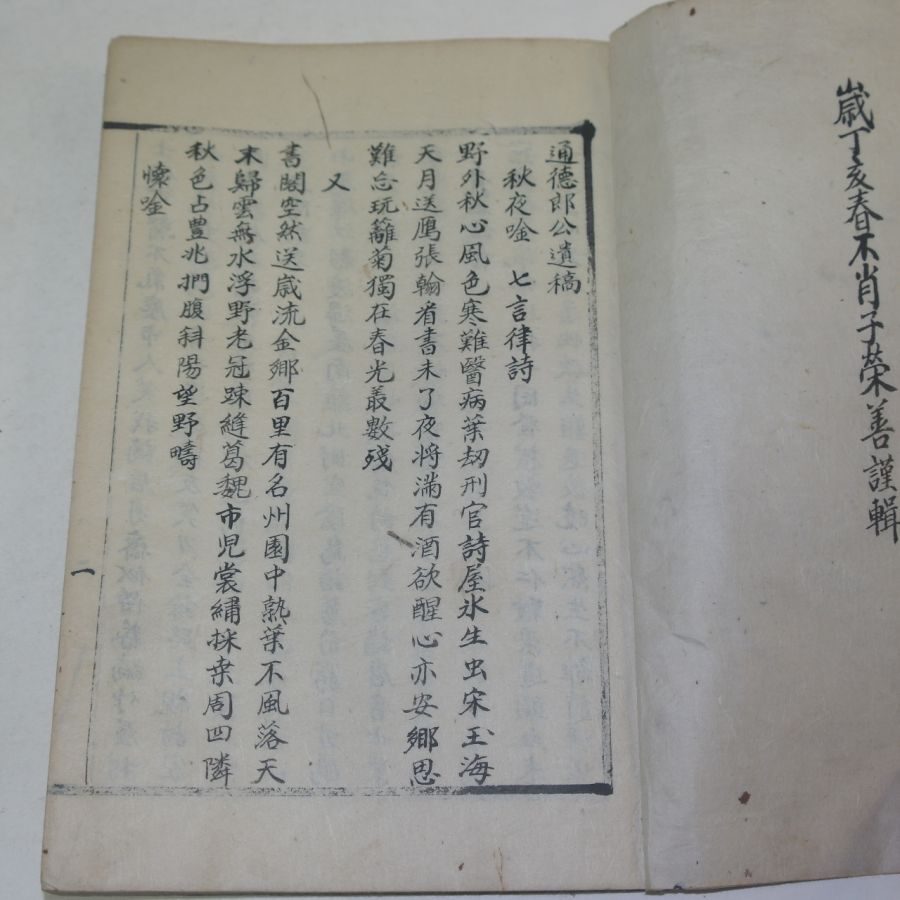 歲丁亥春不肖子榮善謹輯
通德郎公遺稿
秋夜唫 七言律詩
野外秋心風色寒難醫病葉刼刑官詩屋氷生虫宋玉海
天月送鴈張翰者書未了夜將滿有酒欲醒心亦安鄉思
難忘玩籬菊獨在春光最數殘
又
書閣空然送歲流金鄉百里有名州園中熟葉不風落天
末歸雲無水浮野老冠踈縫葛魏市児裳繡採桒周四隣
秋色占豊兆捫腹斜陽望野疇
懷唫
一